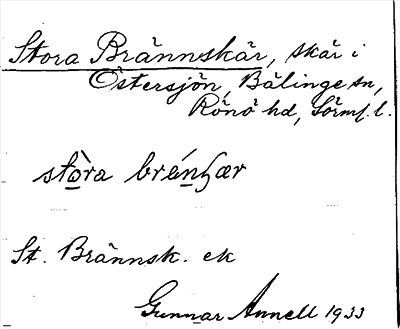 Stora Brännskär, skär i
Östersjön, Bälinge sn,
Rönö hd, Sörml. l.
stòra brénʒær
St. Brännsk. ek
Gunnar Annell 1933